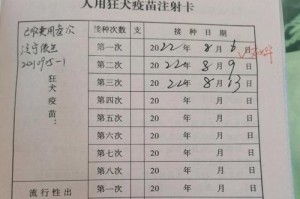 人用狂犬疫苗注射卡
接种次数 支 接 种 日 期
第一次 2022年8月6日
第二次 2022年8月9日
第三次 2022年8月13日
第四次 20 年 月 日
第五次 20 年 月 日
第六次 20 年 月 日
第七次 20 年 月 日
第八次 20 年 月 日
狂犬疫苗：
流行性出
第一次 20 年 月 日